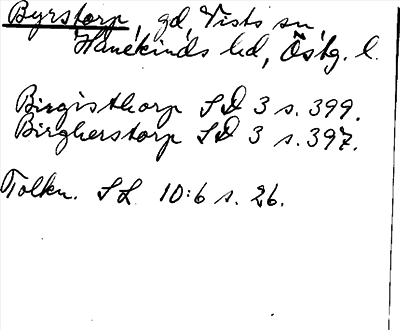 Byrstorp, gd, Vists sn,
Hanekinds hd, Östg. l.
Birgisthorp SD 3 s. 399.
Birgherstorp SD 3 s. 397.
Tolkn. SL 10:6 s. 26.